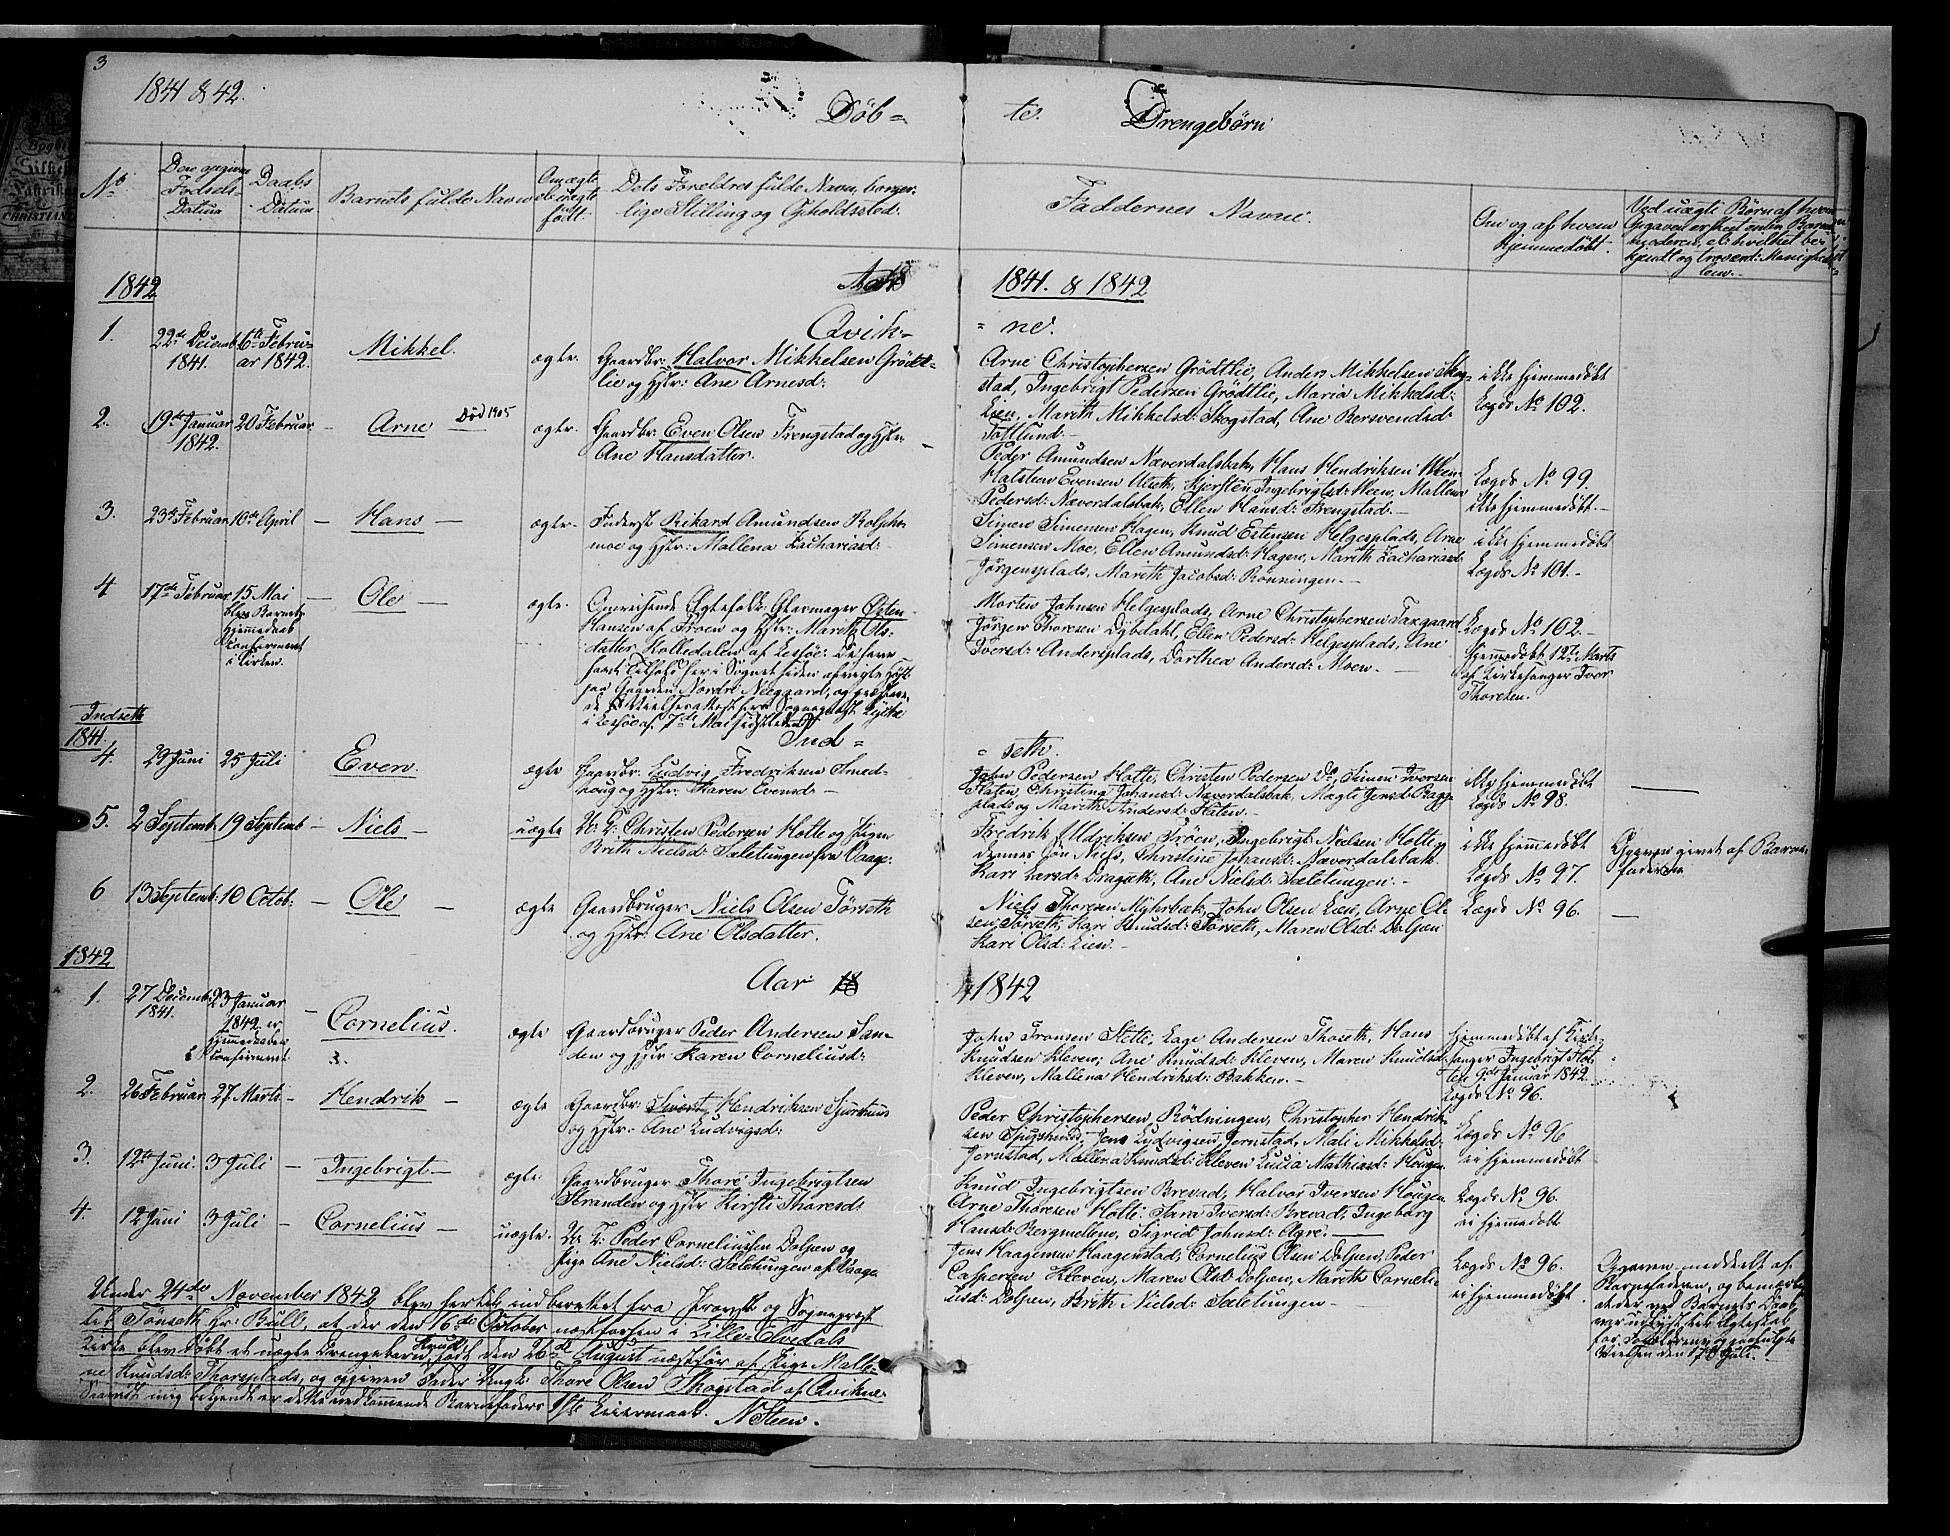 3
1841 & 42.
Døb= te. Drengebørn
No
Den opgivne
Fødsels-
Datum
Daabs
Datum
Barnets fulde Navn
Om ægte
el. uægte
født.
Dets Forældres fulde Navn, borger-
lige Stilling og Opholdssted.
Faddernes Navne.
Om og af hvem
hjemmedøbt.
Ved uægte Børn af hvem
Opgaven er skeet enten Barne-
moderen, el: hvilket be-
kjendt og troværd: Menighed
lem.
1842
1841. & 1842
Qvik= = ne.
1.
22de Decemb.
1841.
6te Febru-
ar 1842.
Mikkel.
ægte.
Gaardbr: Halvor Mikkelsen Grødt-
lie og Hstr: Ane Arnesd:
Arne Christophersen Grødtlie, Anders Mikkelsen Skog-
stad, Ingebrigt Pedersen Grødtlie, Maria Mikkelsd:
Lien, Marith Mikkelsd: Skogstad, Ane Berswendsd:
Tøtlund.-
ikke hjemmedøbt
Lægds No 102.
2.
19de Januar
1842.
20 Februar
Arne
Død 1905
ægte.
Gaardbr: Even Olsen Frengstad og Hstr:
Ane Hansdatter.
Peder Amundsen Næverdalsbak, Hans Hendriksen Ween
Halsten Evensen Ulseth, Kjersten Ingebrigtsd: Ween, Mallena
Pedersd: Næverdalsbak, Ellen Hansd: Frengstad.-
Lægds No 99.
ikke hjemmedøbt.-
3.
23de Februar
10de April
Hans
ægte.
Inderst Rikard Amundsen Rolphs-
moe og Hstr: Mallena Zachariasd:
Simen Simensen Hagen, Knud Estensen Helgesplads, Arne
Simensen Moe, Ellen Amundsd: Hagen, Marith Zachariasd:
Jørgensplads, Marith Jacobsd: Rønningen.-
ikke hjemmedøbt
Lægds No 101.-
4
17de Februar
15 Mai
blev Barnets
hjemmedaab
Confirmeret
i Kirken.
Ole
ægte.
Omreisende Ægtefolk: Glarmager Østen
Hansen af Froen og Hstr: Marith Ols-
datter Kolledalen af Lessøe: De have
havt Tilhold her i Sognet siden afvigte Høst
paa Gaarden Nordre Neegaard, og
i Lessøe af 7de Mai sidstleden.
Morten Johnsen Helgesplads, Arne Christophersen Faxgaard
Jørgen Thoresen Dybdahl, Ellen Pedersd: Helgesplads, Ane
Iversd: Andersplads, Dorthea Andersd: Moen.-
Lægds No 102.-
hjemmedøbt 12te Marts
af Kirkesanger Iver
Thoresen.
Indseth
1841.
Ind= = seth.
4.
29 Juni
25 Juli
Even.
ægte
Gaardbr: Ludvig Fredriksen Smed-
houg og Hstr: Karen Evensd:
John Pedersen Holte, Christen Pedersen Do, Simen Iversen
Flaten, Christina Johansd: Næverdalsbak, Magli Jensd: Bagge-
plads og Marith Andersd: Flaten.-
ikke hjemmedøbt
Lægds No 98.
5.
2 Septemb:
19 Septemb
Niels
uægte
U: K: Christen Pedersen Holte og Pigen
Brith Nielsd: Sæletungen fra Vaage.
Fredrik Uldriksen Frøen, Ingebrigt Nielsen Holte og
dennes Søn Niels, Christine Johansd: Næverdalsbak
Kari Larsd: Dragseth, Ane Nielsd: Sæletungen.-
ikke hjemmedøbt
Lægds No 97.
Opgaven givet af Barne-
faderen
6
13 Septemb:
10 Octob:
Ole
ægte
Gaardbruger Niels Olsen Tørseth
og Hstr: Ane Olsdatter.
Niels Thoresen Myhrbak, John Olsen Lien, Arne Ol-
sen Tørseth, Kari Knudsd: Tørseth, Maren Olsd: Dolpen
Kari Olsd: Lien.-
Lægds No 96.
1842
Aar 1842
1.
27 Decemb:
1841.
23 Januar
1842 er
hjemmedaaben
Confirmeret
Cornelius.
3.
ægte
Gaardbruger Peder Andersen San-
den og Hstr Karen Corneliusd:
John Fransen Stelte, Lage Andersen Thoseth, Hans
Knudsen Kleven, Ane Knudsd: Kleven, Maren Knudsd:
Kleven, Mallena Hendriksd: Bakken.-
hjemmedøbt af Kirke-
sanger Ingebrigt Hol-
te 9de Januar 1842.
Lægds No 96.
2.
26 Februar
27 Marts
Hendrik
ægte
Gaardbr: Sivert Hendriksen Sjurshuus
og Hstr: Ane Ludvigsd:
Peder Christophersen Rødningen, Christopher Hendrik-
sen Sjurshuus, Jens Ludvigsen Jernstad, Mali Mikkelsd:
Jernstad, Mallena Knudsd: Kleven Lucia Mathiasd: Hougen
Lægds No 96
ei hjemmedøbt
3.
12te Juni.
3 Juli
Ingebrigt.
ægte
Gaardbruger Thore Ingebrigtsen
Stranden og Hstr Kirsti Thoresd:
Knud Ingebrigtsen Brevad, Halvor Iversen Hougen
Arne Thoresen Holte, Sara Iversd: Brevad, Ingeborg
Hansd: Bergmellem, Sigrid Johnsd:
Lægds No 96.
ei hjemmedøbt
4.
12 Juni
3 Juli
Cornelius
uægte.
U: K: Peder Corneliussen Dolpen og
Pige Ane Nielsd: Sæletungen af Vaage
Jens Haagensen Haagenstad, Cornelius Olsen Dolpen, Peder
Caspersen Kleven, Maren Olsd: Dolpen, Mareth Corneli-
usd: Dolpen, Brith Nielsd: Sæletungen
Lægds No 96.
ei hjemmedøbt
Opgaven meddeelt af
Barnefaderen, og bemærkes
at der ved Barnets Daab
var udlyst til Ægteskab
for Forældrene og paafulgte
Vielsen den 17de Juli.
Under 24de November 1842 blev hertil indberettet fra Provst og Sognepræst
til Tønseth Hr: Bull, at der den 16de October næstforhen i Lille-Elvedals
Kirke blev døbt et uægte Drengebarn Knud, født den 26de August næstfør af Pige Malle-
ne Knudsd: Thorsplads, og opgiven Fader Ungk: Thore Olsen Skogstad af Qvikne.
Saavidt mig bekjendt er dette vedkommende Barnefaders 1ste Leiermaal. N Steen.